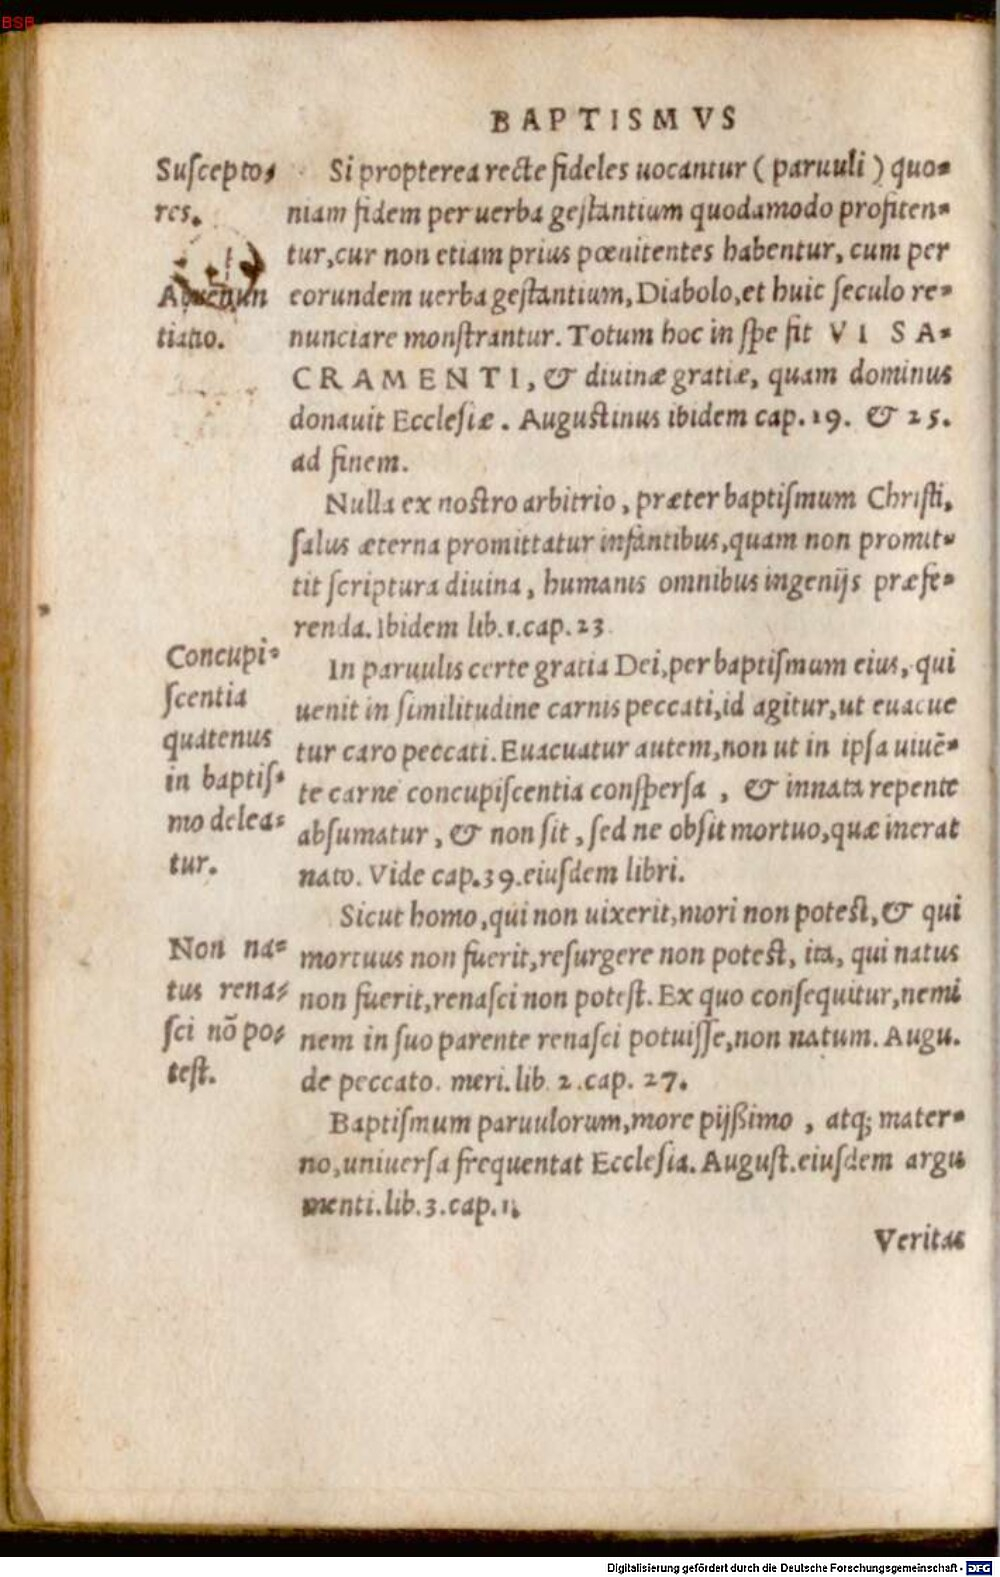 BSB
BAPTISMVS
Suscepto-
res.
Abrenun
tiatio.
Si propterea recte fideles uocantur (paruuli) quo-
niam fidem per uerba gestantium quodamodo profiten-
tur, cur non etiam prius pœnitentes habentur, cum per
eorundem uerba gestantium, Diabolo, et huic seculo re-
nunciare monstrantur. Totum hoc in spe fit VI SA-
CRAMENTI, & diuinæ gratiæ, quam dominus
donauit Ecclesiæ. Augustinus ibidem cap. 19. & 25.
ad finem.
Nulla ex nostro arbitrio, præter baptismum Christi,
salus æterna promittatur infantibus, quam non promit-
tit scriptura diuina, humanis omnibus ingenijs præfe-
renda. Ibidem lib. 1. cap. 23
Concupi-
scentia
quatenus
in baptis-
mo delea-
tur.
In paruulis certe gratia Dei, per baptismum eius, qui
uenit in similitudine carnis peccati, id agitur, ut euacue
tur caro peccati. Euacuatur autem, non ut in ipsa uiuē-
te carne concupiscentia conspersa, & innata repente
absumatur, & non sit, sed ne obsit mortuo, quæ inerat
nato. Vide cap. 39. eiusdem libri.
Non na-
tus rena-
sci nō po-
test.
Sicut homo, qui non uixerit, mori non potest, & qui
mortuus non fuerit, resurgere non potest, ita, qui natus
non fuerit, renasci non potest. Ex quo consequitur, nemi
nem in suo parente renasci potuisse, non natum. Augu.
de peccato. meri. lib. 2. cap. 27.
Baptismum paruulorum, more pijßimo, atq; mater-
no, uniuersa frequentat Ecclesia. August. eiusdem argu
menti. lib. 3. cap. 1.
Veritas
Digitalisierung gefördert durch die Deutsche Forschungsgemeinschaft - DFG